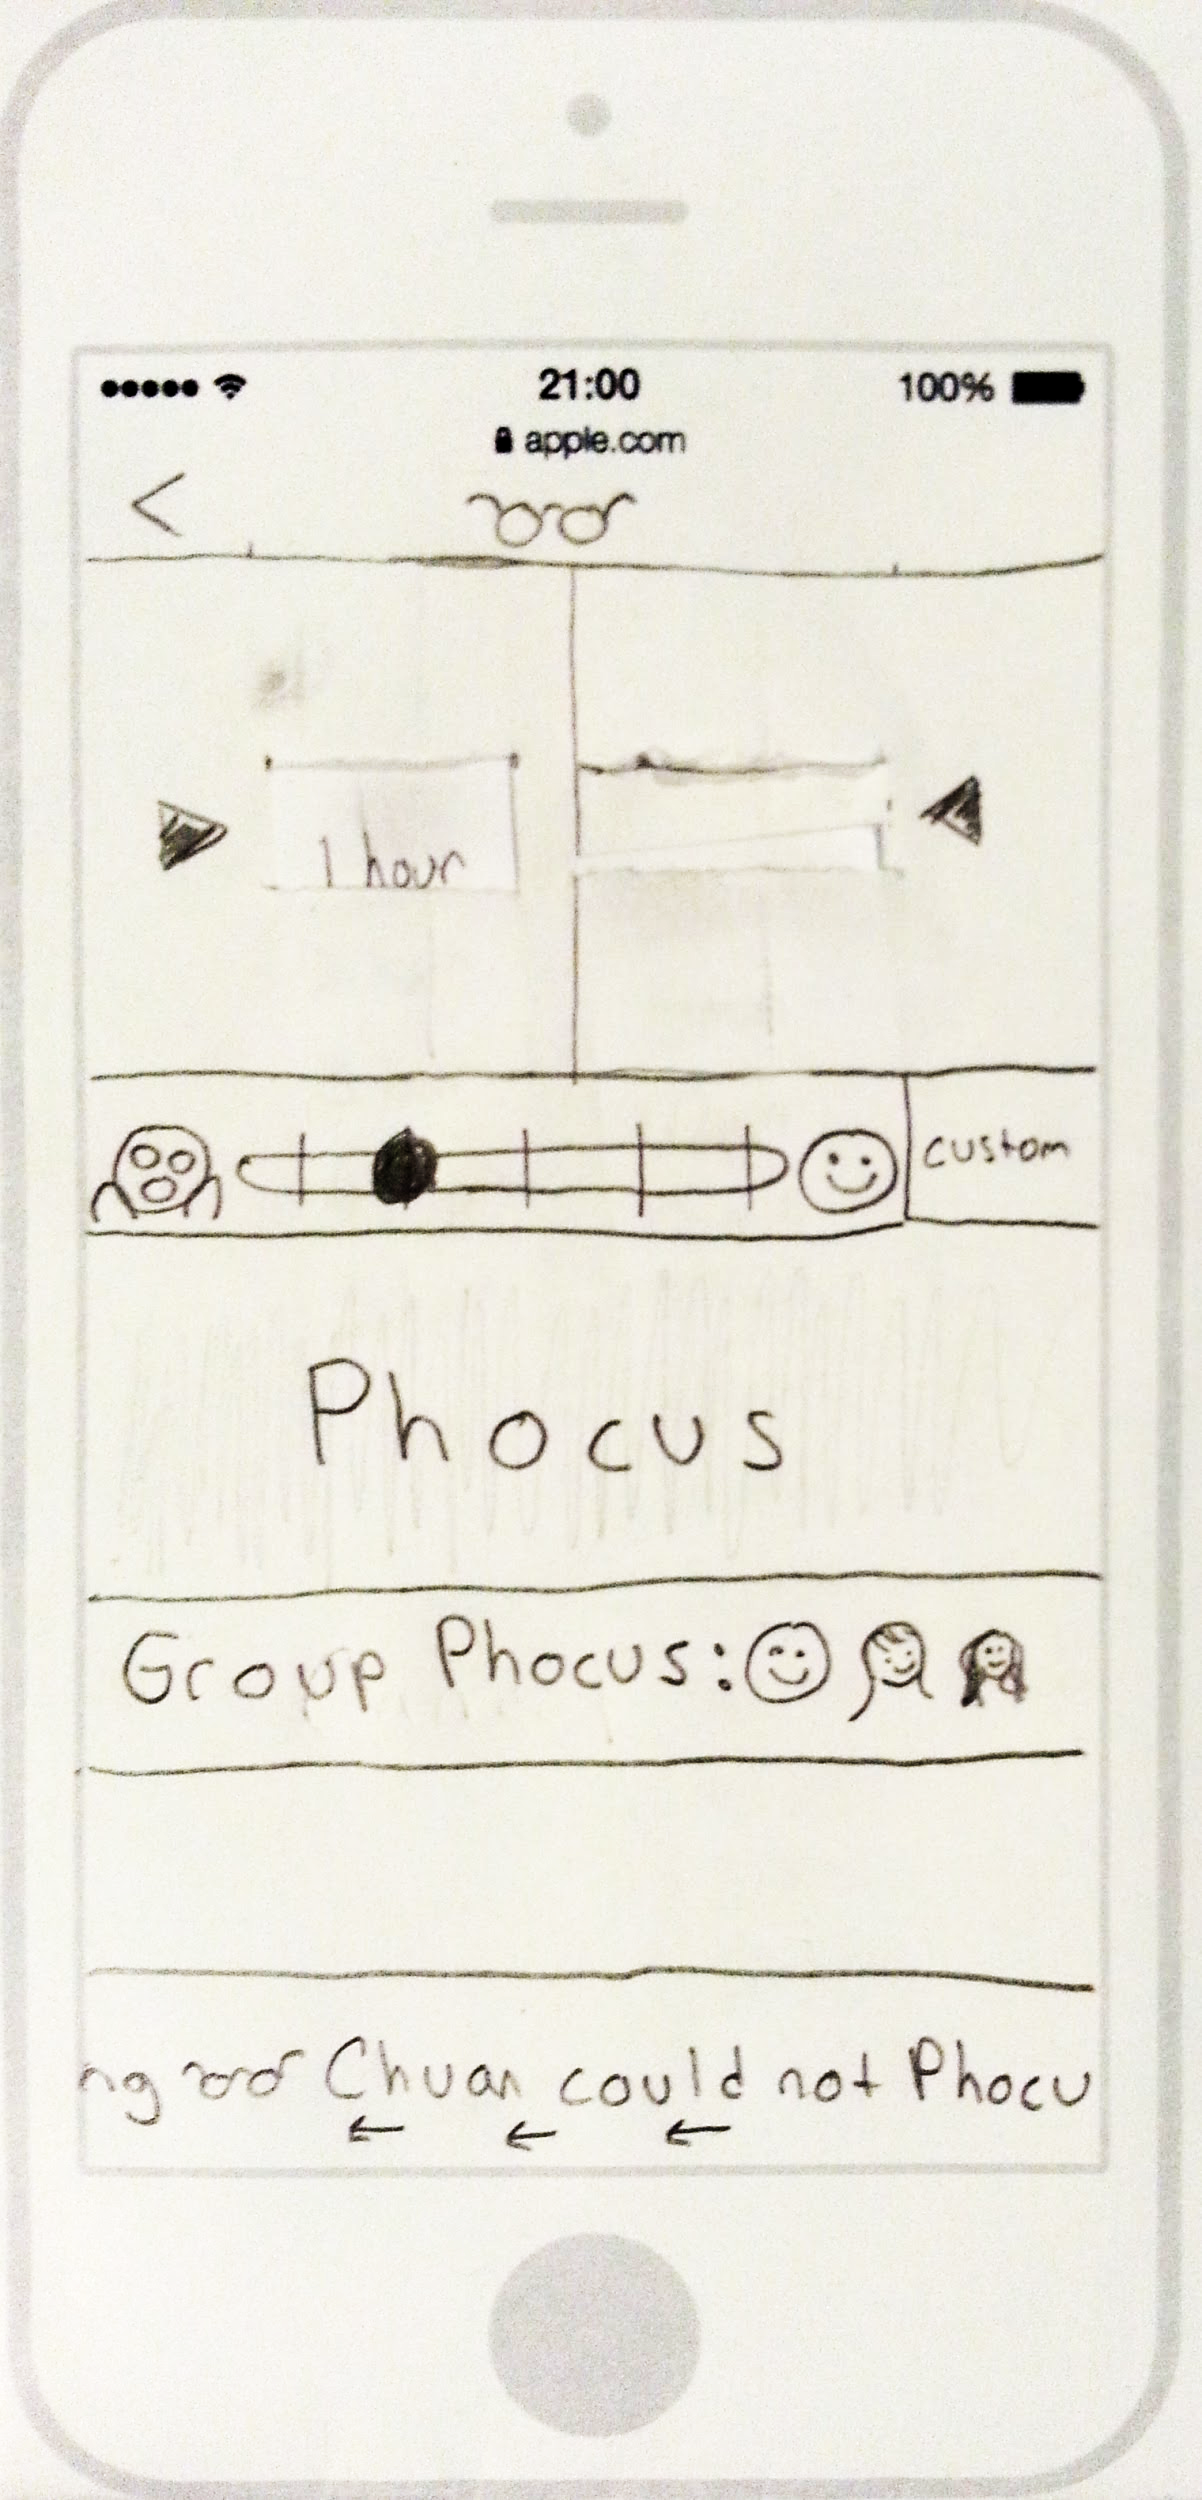 21:00
100%
apple.com
<
1 hour
custom
Phocus
Group Phocus:
ng Chuan could not Phocu